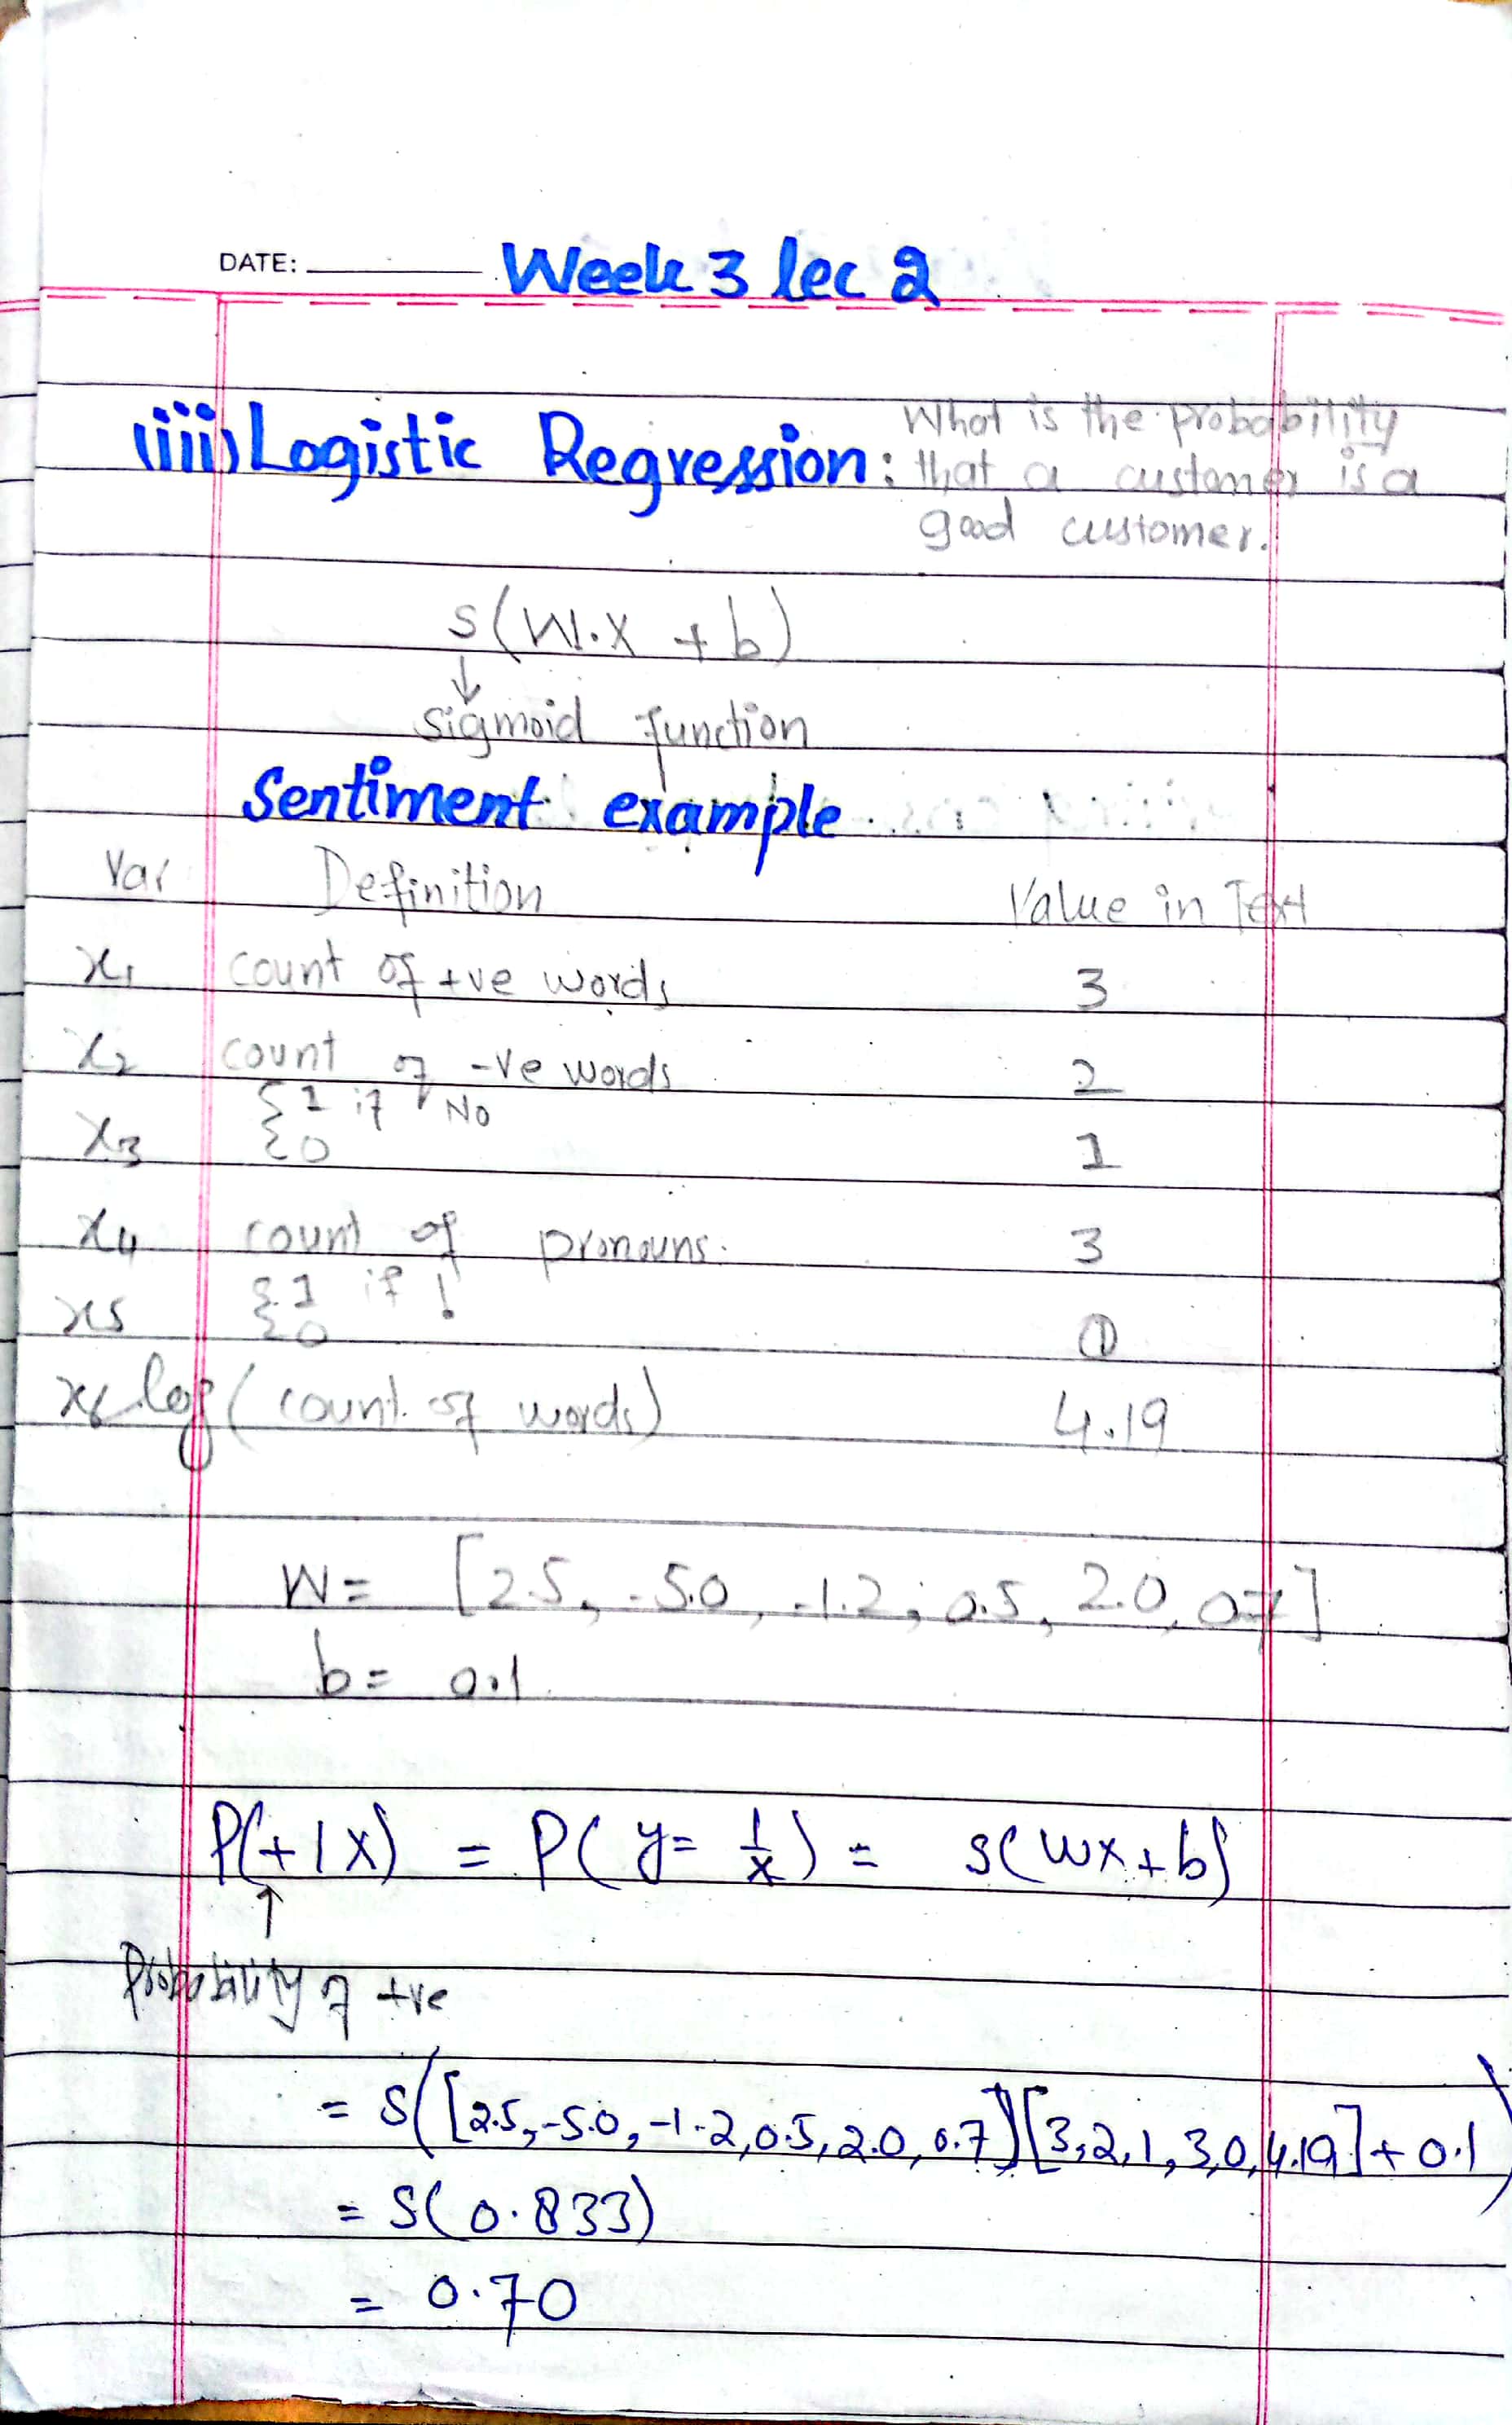 DATE: Week 3 lec 2
(iii) Logistic Regression: What is the probability
that a customer is a
good customer.
s(W.X + b)
↓
sigmoid function
Sentiment example
Var Definition Value in Text
x₁ count of +ve words 3
x₂ count of -ve words 2
x₃ {1 if No
{0 1
x₄ count of pronouns. 3
x5 {1 if !
{0 0
x₆ log(count of words) 4.19
W = [2.5, -5.0, -1.2, 0.5, 2.0, 0.7]
b = 0.1
P(+|X) = P(y= 1/x) = s(wx+b)
↑
Probability of +ve
= S([2.5,-5.0,-1.2,0.5,2.0,0.7][3,2,1,3,0,4.19]+0.1)
= S(0.833)
= 0.70